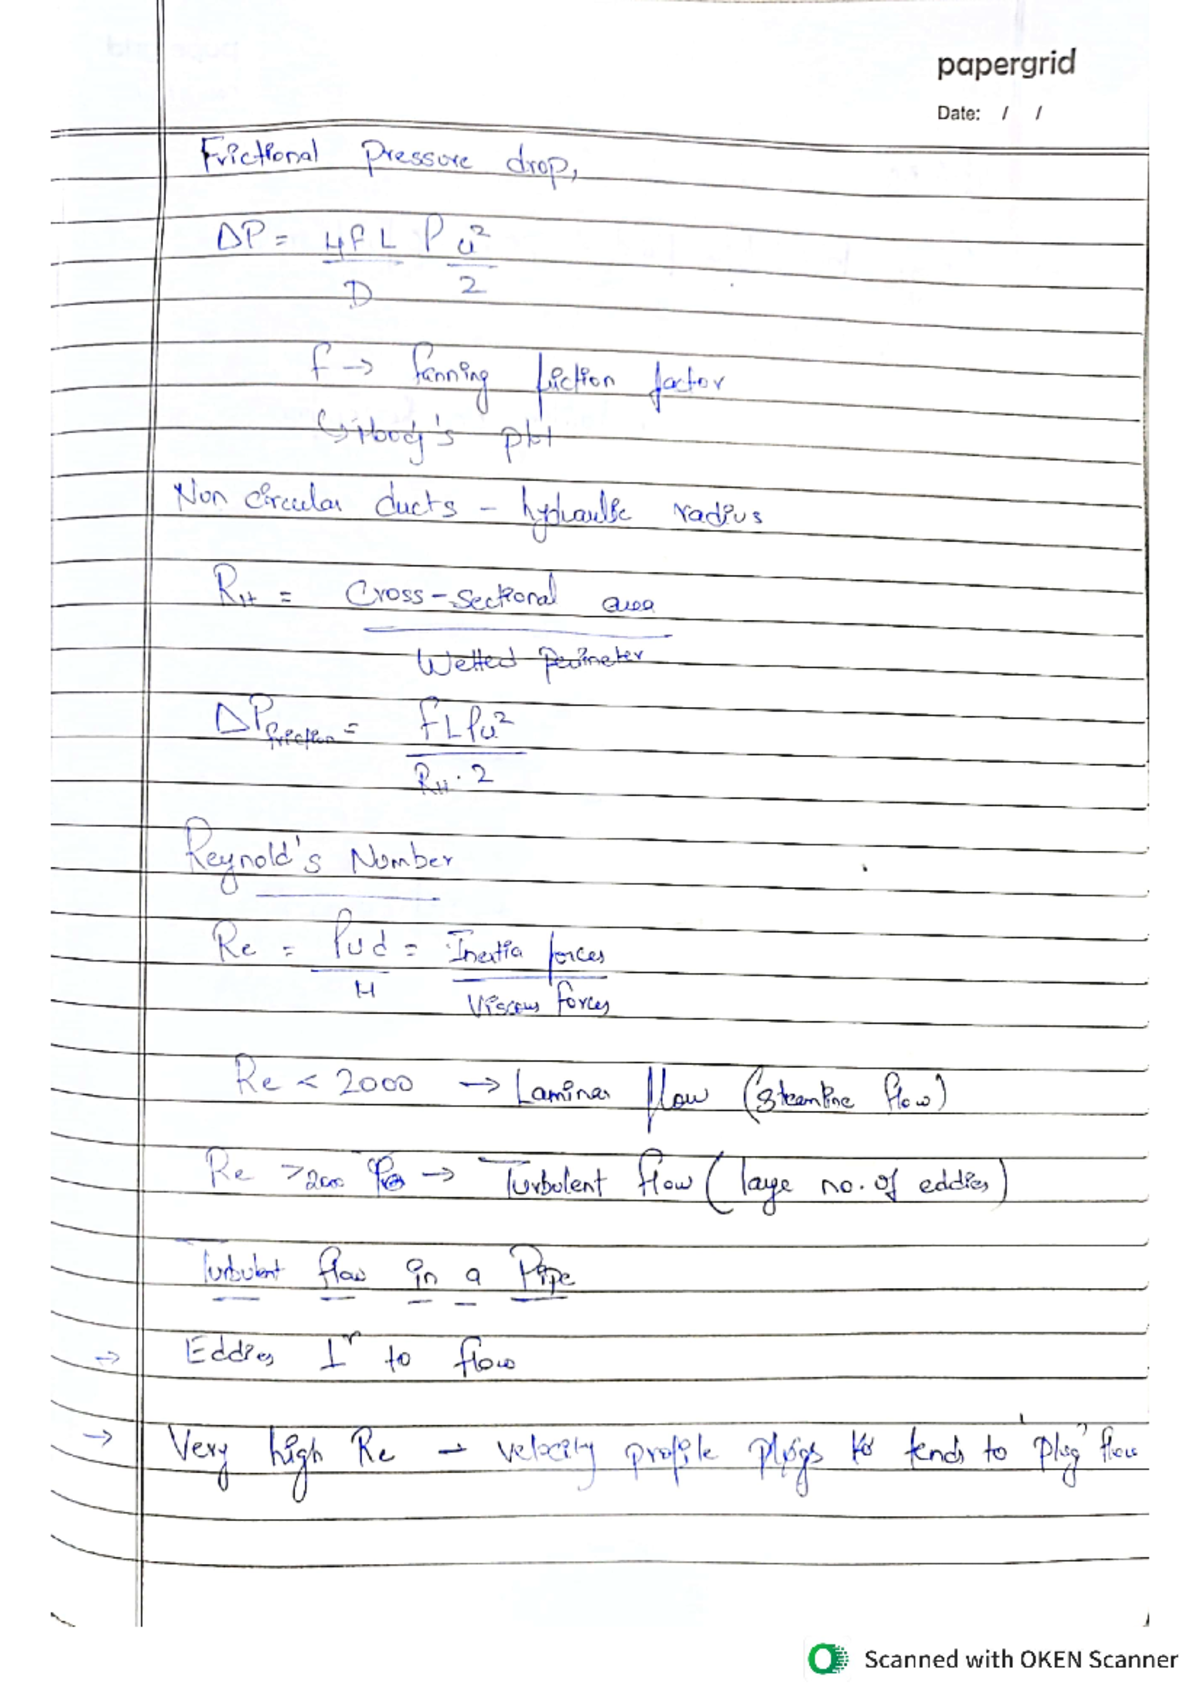 papergrid
Date: / /
Frictional Pressure drop,
ΔP = 4fL ρ u²
D 2
f → fanning friction factor
↳ Moody's plot
Non circular ducts - hydraulic radius
R_H = Cross-sectional area
Wetted perimeter
ΔP_friction = fLρu²
R_H · 2
Reynold's Number
Re = ρud = Inertia forces
μ Viscous forces
Re < 2000 → Laminar flow (streamline flow)
Re > 2000 → Turbulent flow (large no. of eddies)
Turbulent flow in a Pipe
→ Eddies ⊥r to flow
→ Very high Re → velocity profile tends to 'plug' flow
Scanned with OKEN Scanner